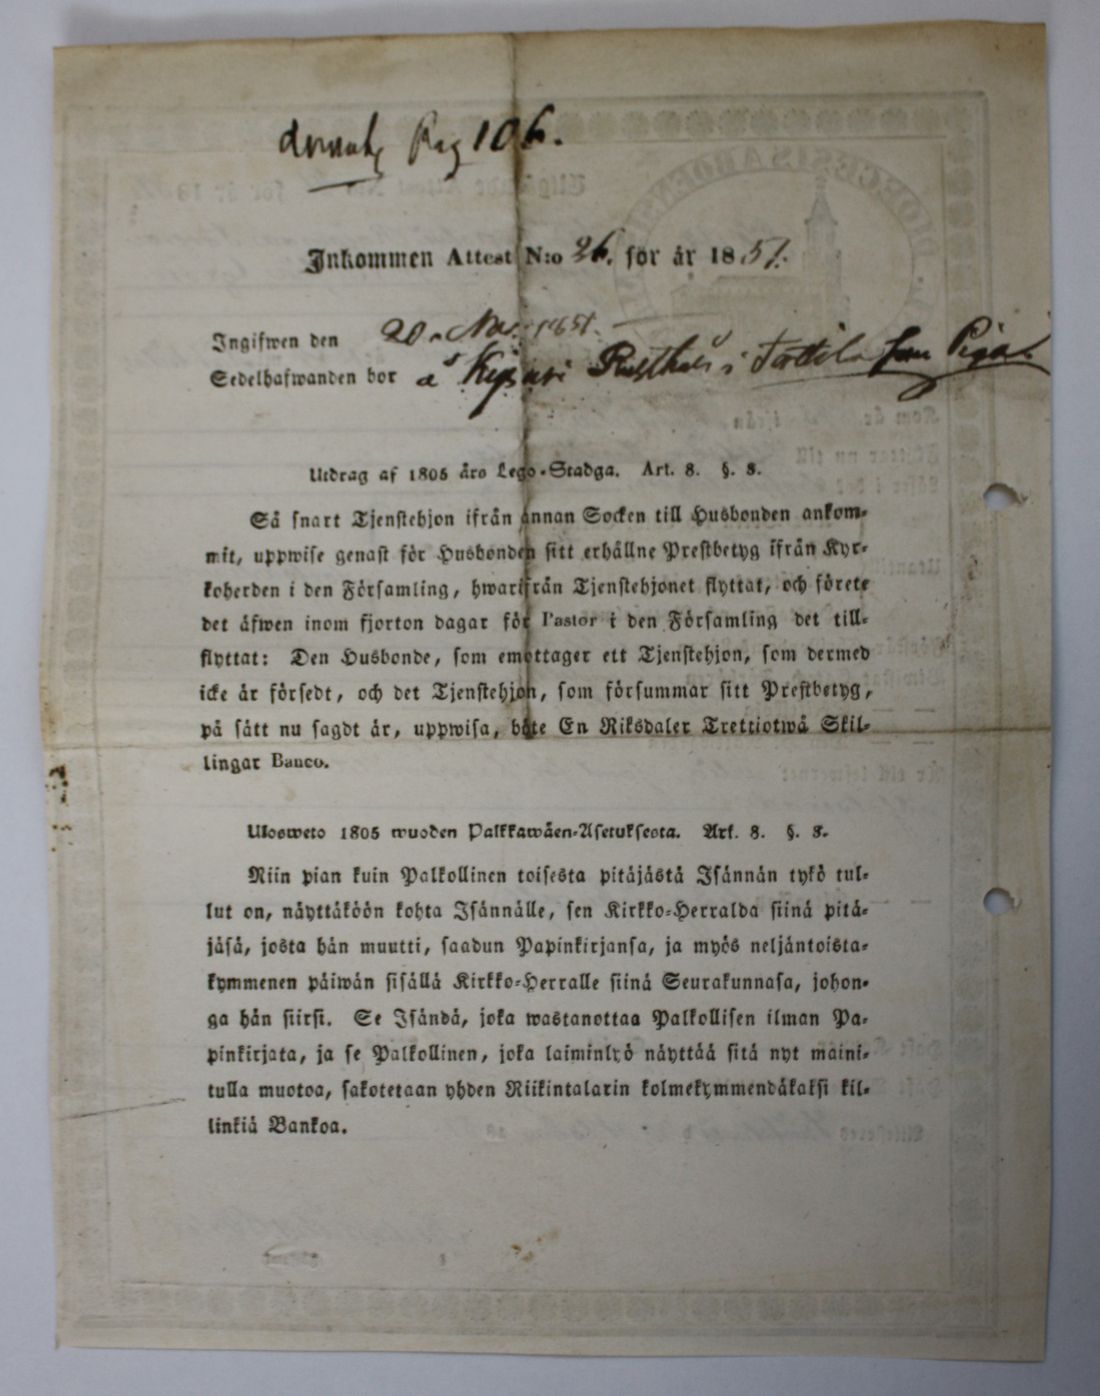 Pag 106.
Inkommen Attest N:o 26. för år 1851.
Ingifwen den 20 Nov. 1851.
Sedelhafwanden bor å Kipari Rusthåll i Tottila som Piga
Utdrag af 1805 års Lego-Stadga. Art. 8. §. 8.
Så snart Tjenstehjon ifrån annan Socken till Husbonden ankom-
mit, uppwise genast för Husbonden sitt erhållne Prestbetyg ifrån Kyr-
koherden i den Församling, hwarifrån Tjenstehjonet flyttat, och förete
det äfwen inom fjorton dagar för Pastor i den Församling det till-
flyttat: Den Husbonde, som emottager ett Tjenstehjon, som dermed
icke är försedt, och det Tjenstehjon, som försummar sitt Prestbetyg,
på sätt nu sagdt är, uppwisa, böte En Riksdaler Trettiotwå Skil-
lingar Banco.
Ulosweto 1805 wuoden Palkkawäen-Asetuksesta. Art. 8. §. 8.
Niin pian kuin Palkollinen toisesta pitäjästä Isännän tykö tul-
lut on, näyttäköön kohta Isännälle, sen Kirkko-Herralda siinä pitä-
jäsä, josta hän muutti, saadun Papinkirjansa, ja myös neljäntoista-
kymmenen päiwän sisällä Kirkko-Herralle siinä Seurakunnasa, johon-
ga hän siirsi. Se Isändä, joka wastanottaa Palkollisen ilman Pa-
pinkirjata, ja se Palkollinen, joka laiminlyö näyttää sitä nyt maini-
tulla muotoa, sakotetaan yhden Riikintalarin kolmekymmendäkaksi kil-
linkiä Bankoa.